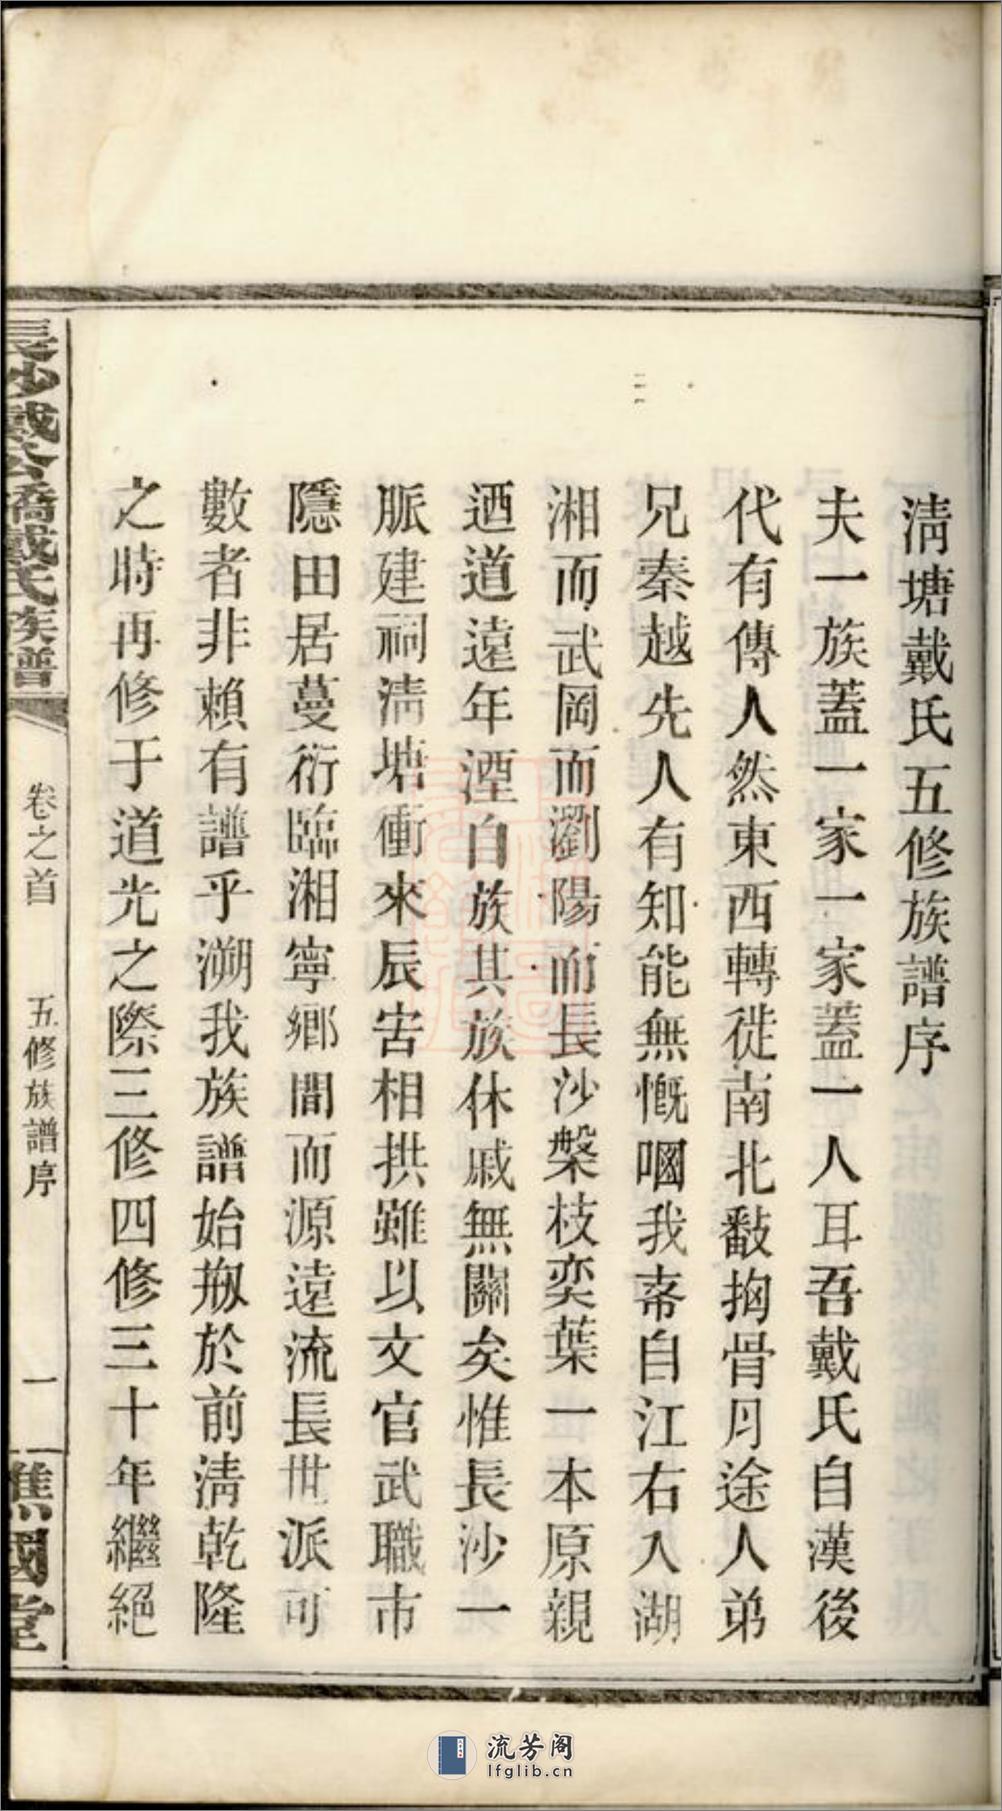 清塘戴氏五修族譜序
夫一族蓋一家一家蓋一人耳吾戴氏自漢後
代有傳人然東西轉徙南北敽拘骨月途人弟
兄秦越先人有知能無慨嘓我斋自江右入湖
湘而武岡而瀏陽而長沙槃枝奕葉一本原親
迺道遠年湮自族其族休戚無關矣惟長沙一
脈建祠清塘衝來辰害相拱雖以文官武職市
隱田居蔓衍臨湘寧鄉間而源遠流長世派可
數者非賴有譜乎溯我族譜始剏於前清乾隆
之時再修于道光之際三修四修三十年繼絕
長沙戴公橋戴氏族譜
卷之首
五修族譜序
一
譙國堂
流芳阁
lfglib.cn